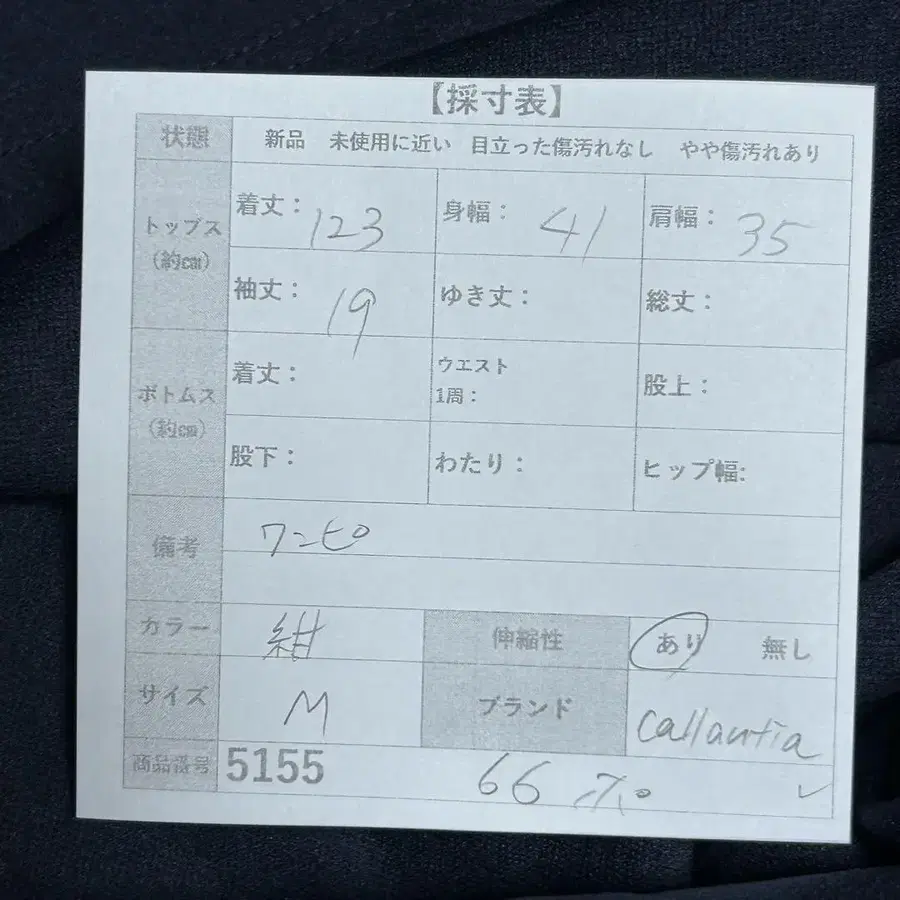 【採寸表】
状態 新品 未使用に近い 目立った傷汚れなし やや傷汚れあり
トップス
(約㎝)
着丈： 123 身幅： 41 肩幅： 35
袖丈： 19 ゆき丈： 総丈：
ボトムス
(約㎝)
着丈： ウエスト
1周： 股上：
股下： わたり： ヒップ幅:
備考 ワンピ
カラー 紺 伸縮性 あり 無し
サイズ M ブランド Callantia
商品番号 5155 66